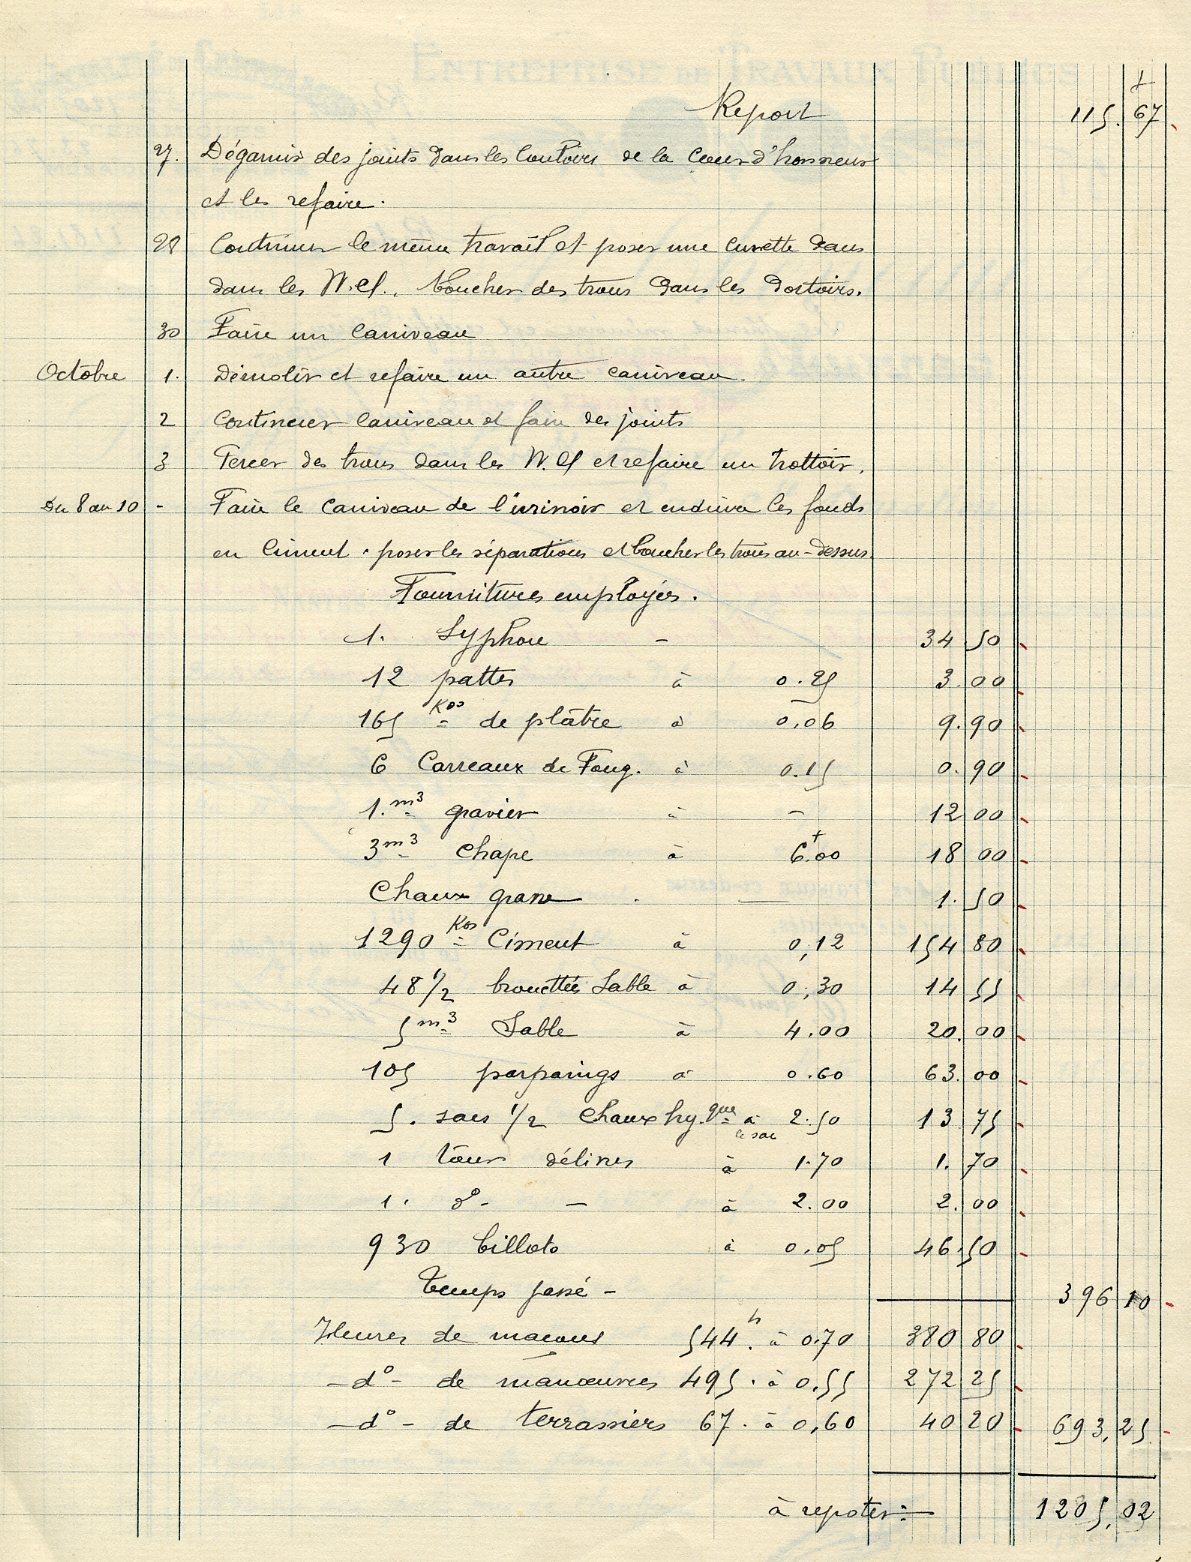 Report 115.67
27. Dégarnir des joints dans les Couloirs de la Cour d'honneur
et les refaire.
28 Continuer le même travail et poser une cuvette dans
dans les W.Cl., boucher des trous dans les Dortoirs.
30 Faire un Caniveau
Octobre 1. Démolir et refaire un autre caniveau.
2 Continuer Caniveau et faire des joints
3 Percer des trous dans les W.Cl et refaire un trottoir.
Du 8 au 10 - Faire le Caniveau de l'urinoir et enduire les fonds
en Ciment. poser les séparations et boucher les trous au-dessus.
Fournitures employées.
1. Syphon - 34.50
12 pattes à 0.25 3.00
165 Kos de plâtre à 0.06 9.90
6 Carreaux de Foug. à 0.15 0.90
1. m3 gravier - - 12 00
3 m3 Chape à 6.00 18 00
Chaux grasse - 1.50
1290 Kos Ciment à 0,12 154 80
48 1/2 brouettées Sable à 0,30 14 55
5 m3 Sable à 4.00 20.00
105 parpaings à 0.60 63.00
5. sacs 1/2 Chaux hy.que à 2.50 13 75
le sac
1 à 1.70 1.70
1. do - - à 2.00 2.00
930 billots à 0.05 46.50
Temps passé - 396 10
Heures de maçons 544 h. à 0.70 380 80
-do- de manœuvres 495. à 0,55 272 25
-do- de terrassiers 67. à 0,60 40 20 693,25
à repoter :- 1205,02
ENTREPRISE DE TRAVAUX PUBLICS